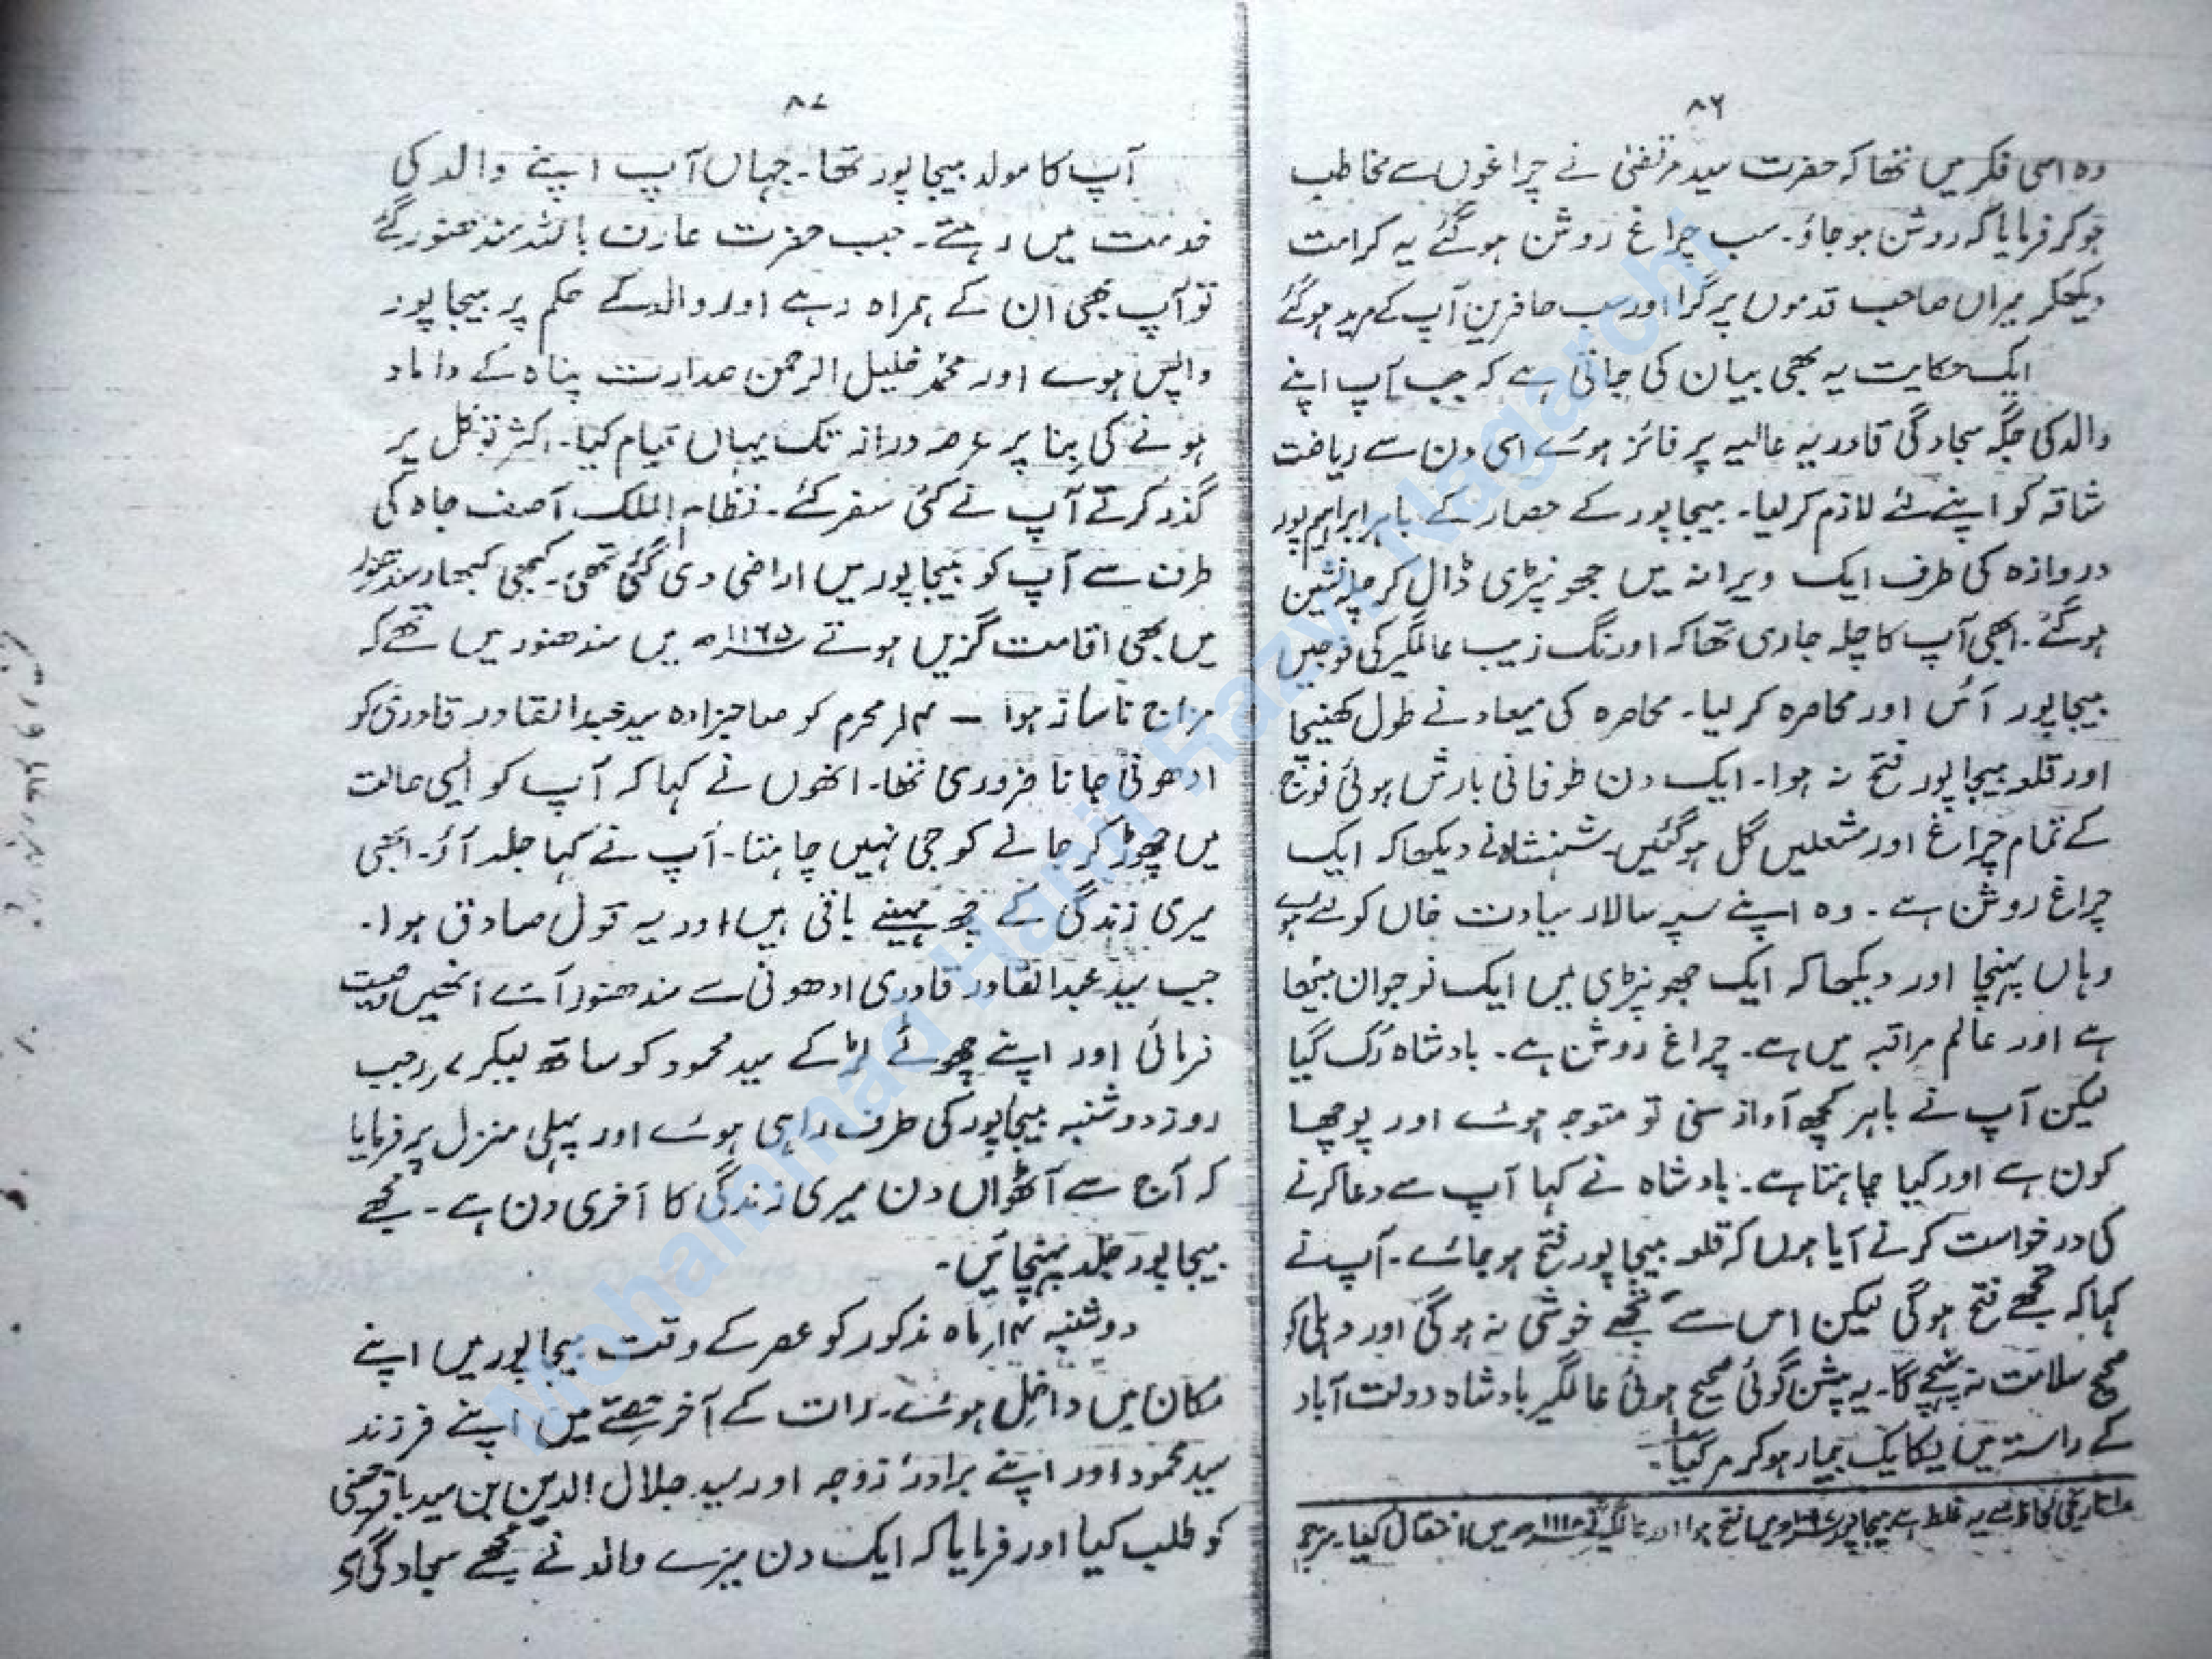 ۸۶
وہ اسی فکر میں تھا کہ حضرت سید مرتضیٰ نے چراغوں سے مخاطب
ہوکر فرمایا کہ روشن ہوجاؤ۔ سب چراغ روشن ہوگئے یہ کرامت
دیکھکر میراں صاحب قدموں پر گرا اور سب حاضرین آپ کے مرید ہوگئے
ایک حکایت یہ بھی بیان کی جاتی ہے کہ جب آپ اپنے
والد کی جگہ سجادگی قادریہ عالیہ پر فائز ہوئے اسی دن سے ریاضت
شاقہ کو اپنے لئے لازم کرلیا۔ بیجاپور کے حصار کے باہر ابراہیم پور
دروازہ کی طرف ایک ویرانہ میں جھونپڑی ڈال کر چلہ نشین
ہوگئے۔ ابھی آپ کا چلہ جاری تھا کہ اورنگ زیب عالمگیر کی فوجیں
بیجاپور آئیں اور محاصرہ کرلیا۔ محاصرہ کی میعاد نے طول کھینچا
اور قلعہ بیجاپور فتح نہ ہوا۔ ایک دن طوفانی بارش ہوئی فوج
کے تمام چراغ اور مشعلیں گل ہوگئیں۔ شہنشاہ نے دیکھا کہ ایک
چراغ روشن ہے۔ وہ اپنے سپہ سالار سیادت خاں کو لئے ہوئے
وہاں پہنچا اور دیکھا کہ ایک جھونپڑی میں ایک نوجوان بیٹھا
ہے اور عالم مراقبہ میں ہے۔ چراغ روشن ہے۔ بادشاہ رُک گیا
لیکن آپ نے باہر کچھ آواز سنی تو متوجہ ہوئے اور پوچھا
کون ہے اور کیا چاہتا ہے۔ بادشاہ نے کہا آپ سے دعا کرنے
کی درخواست کرنے آیا ہوں کہ قلعہ بیجاپور فتح ہوجائے۔ آپ نے
کہا کہ تجھے فتح ہوگی لیکن اس سے تجھے خوشی نہ ہوگی اور دہلی کو
صحیح سلامت نہ پہنچے گا۔ یہ پیشن گوئی صحیح ہوئی عالمگیر بادشاہ دولت آباد
کے راستہ میں یکایک بیمار ہوکر مر گیا۔
تاریخی لحاظ سے یہ غلط ہے بیجاپور میں فتح ہوا اور عالمگیر نے ۱۱۱۸ھ میں انتقال کیا۔ مترجم
۸۷
آپ کا مولد بیجاپور تھا۔ جہاں آپ اپنے والد کی
خدمت میں رہتے۔ جب حضرت عارف باللہ مندھنور گئے
تو آپ بھی ان کے ہمراہ رہے اور والد کے حکم پر بیجاپور
واپس ہوے اور محمد خلیل الرحمن صدارت پناہ کے داماد
ہونے کی بنا پر عرصہ دراز تک یہاں قیام کیا۔ اکثر توکل پر
گذر کرتے آپ نے کئی سفر کئے۔ نظام الملک آصف جاہ کی
طرف سے آپ کو بیجاپور میں اراضی دی گئی تھی۔ کبھی کبھار مندھنور
میں بھی اقامت گزیں ہوتے ۱۱۶۵ھ میں مندھنور میں تھے کہ
مزاج ناساز ہوا — ۴؍ محرم کو صاحبزادہ سید عبدالقادر قادری کو
ادھونی جانا ضروری تھا۔ انھوں نے کہا کہ آپ کو ایسی حالت
میں چھوڑ کر جانے کو جی نہیں چاہتا۔ آپ نے کہا جلد آؤ۔ ابھی
میری زندگی کے چھ مہینے باقی ہیں اور یہ قول صادق ہوا۔
جب سید عبدالقادر قادری ادھونی سے مندھنور آئے انھیں وصیت
فرمائی اور اپنے چھوٹے لڑکے سید محمود کو ساتھ لیکر ۷؍ رجب
روز دوشنبہ بیجاپور کی طرف راہی ہوئے اور پہلی منزل پر فرمایا
کہ آج سے آٹھواں دن میری زندگی کا آخری دن ہے۔ مجھے
بیجاپور جلد پہنچائیں۔
دوشنبہ ۱۴؍ ماہ مذکور کو عصر کے وقت بیجاپور میں اپنے
مکان میں داخل ہوئے۔ رات کے آخر حصے میں اپنے فرزند
سید محمود اور اپنے برادر زوجہ اور سید جلال الدین بن سید باقر
کو طلب کیا اور فرمایا کہ ایک دن میرے والد نے مجھے سجادگی
Mohammad Hanif Razvi Nagarchi